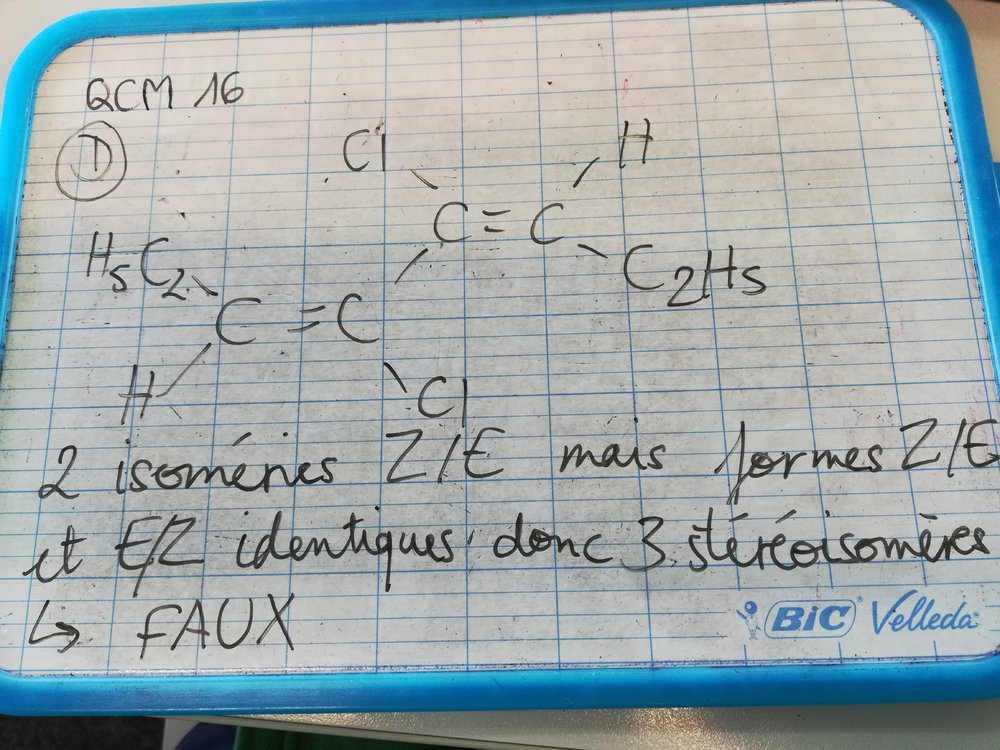 QCM 16
D
Cl H
C = C
H5C2 C2H5
C = C
H Cl
2 isoméries Z/E mais formes Z/E
et E/Z identiques donc 3 stéréoisomères
↳ FAUX
BIC Velleda